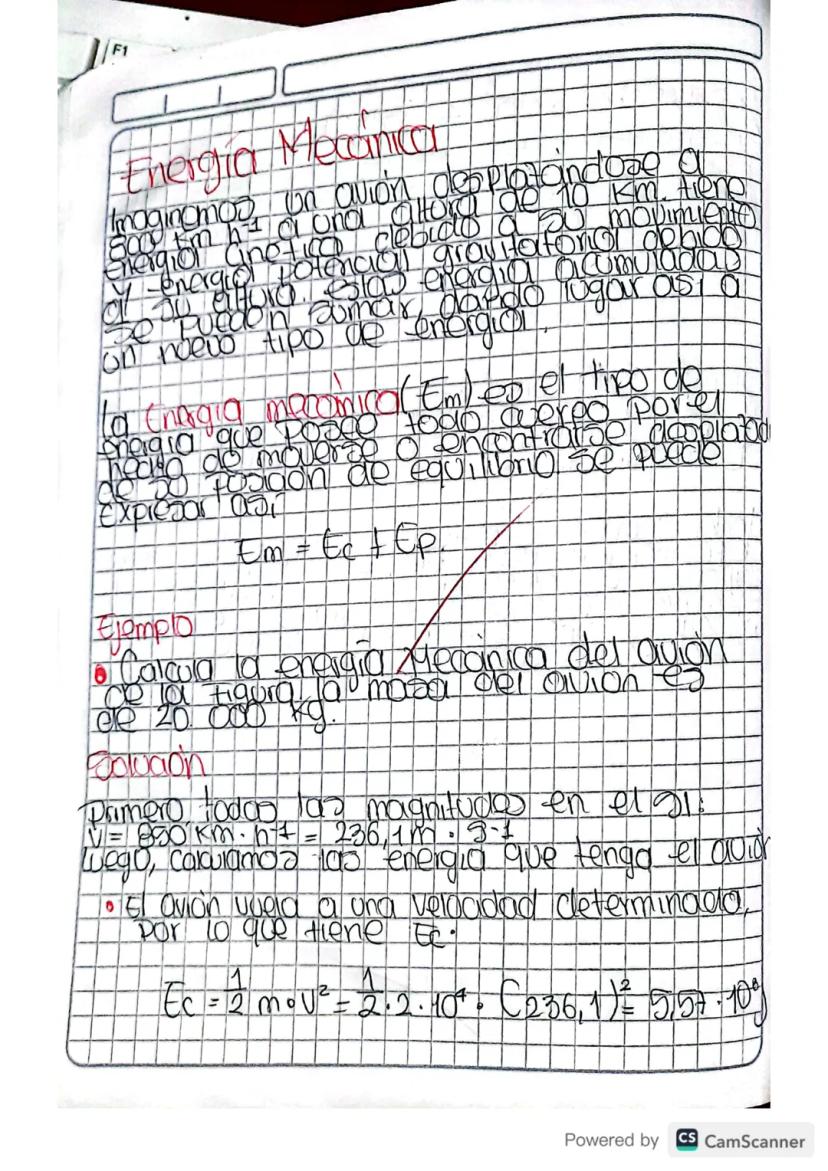 F1
Energía Mecánica
Imaginemos un avión desplazándose a
850 km h⁻¹ a una altura de 10 km. tiene
energia cinetica debido a su movimiento
y energia potencial gravitatorial debido
a su altura. estas energia acumuladas
se pueden sumar, dando lugar asi a
un nuevo tipo de energia.
la Energia mecánica (Em) es el tipo de
energia que posee todo cuerpo por el
hecho de moverse o encontrarse desplazad
de su posición de equilibrio se puede
expresar asi
Em = Ec + Ep.
Ejemplo
• Calcula la energia Mecánica del avión
de la figura, la masa del avion es
de 20 000 kg.
Solución
Primero, todas las magnitudes en el SI:
V = 850 km · h⁻¹ = 236,1 m · s⁻¹
Luego, calculamos las energia que tenga el avión
• El avión vuela a una velocidad determinada,
por lo que tiene Ec.
Ec = 1/2 m·v² = 1/2 · 2 · 10⁴ · (236,1)² = 5,57 · 10⁸ J
Powered by CS CamScanner